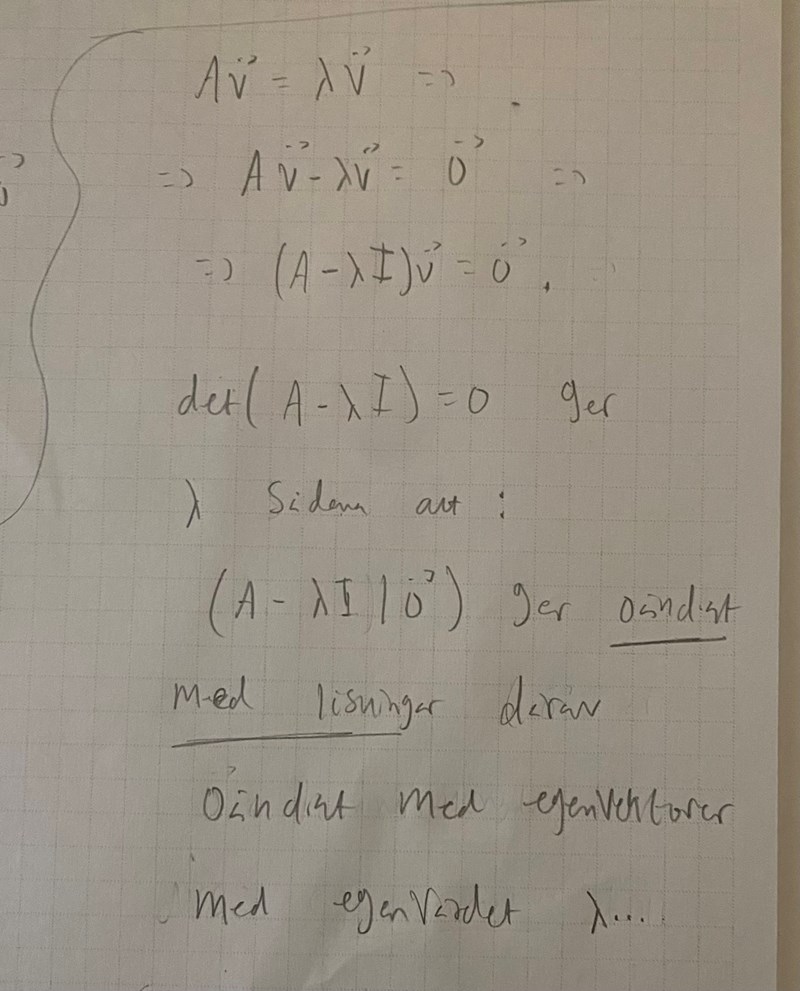 Av⃗ = λv⃗ =>
=> Av⃗ - λv⃗ = 0⃗ =>
=> (A - λI)v⃗ = 0⃗.
det(A - λI) = 0 ger
λ sidana att:
(A - λI | 0⃗) ger oändligt
med lösningar därav
Oändligt med egenvektorer
med egenvärdet λ....